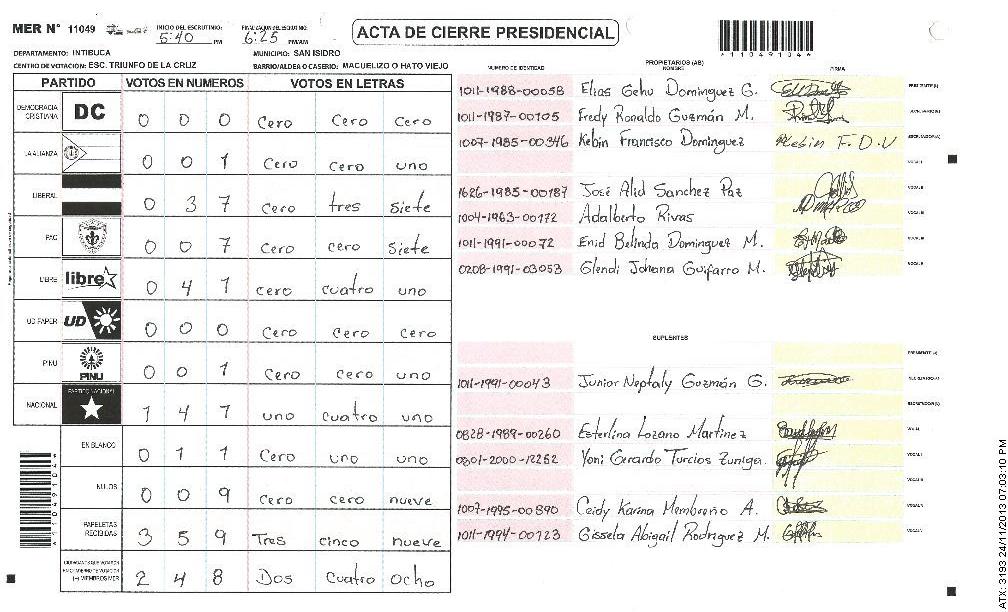 MER N° 11049 INICIO DEL ESCRUTINIO: 5:40 PM FINALIZACION DEL ESCRUTINIO: 6:25 PM/AM
ACTA DE CIERRE PRESIDENCIAL
*1104910A4*
DEPARTAMENTO: INTIBUCA MUNICIPIO: SAN ISIDRO
CENTRO DE VOTACION: ESC. TRIUNFO DE LA CRUZ BARRIO/ALDEA O CASERIO: MACUELIZO O HATO VIEJO
PARTIDO VOTOS EN NUMEROS VOTOS EN LETRAS
DEMOCRACIA CRISTIANA DC 0 0 0 Cero Cero Cero
LA ALIANZA 0 0 1 Cero Cero uno
LIBERAL 0 3 7 Cero tres siete
PAC 0 0 7 Cero cero siete
LIBRE libre 0 4 1 cero cuatro uno
UD FAPER UD 0 0 0 Cero Cero cero
PINU PINU 0 0 1 Cero cero uno
NACIONAL PARTIDO NACIONAL 1 4 1 uno cuatro uno
EN BLANCO 0 1 1 Cero uno uno
NULOS 0 0 9 cero cero nueve
PAPELETAS RECIBIDAS 3 5 9 Tres cinco nueve
CIUDADANOS QUE VOTARON (+) MIEMBROS MER 2 4 8 Dos Cuatro ocho
PROPIETARIOS (AS)
NUMERO DE IDENTIDAD NOMBRE FIRMA
1011-1988-00058 Elias Gehu Dominguez G. PRESIDENTE(A)
1011-1987-00105 Fredy Ronaldo Guzmán M. SECRETARIO(A)
1007-1985-00346 Kebin Francisco Dominguez Kebin F.D.V ESCRUTADOR(A)
VOCAL I
1626-1985-00187 José Alid Sanchez Paz VOCAL II
1004-1963-00172 Adalberto Rivas VOCAL III
1011-1991-00072 Enid Belinda Dominguez M.
0208-1991-03053 Glendi Johana Guifarro M.
SUPLENTES
PRESIDENTE (A)
1011-1991-00043 Junior Neptaly Guzmán G. SECRETARIO(A)
ESCRUTADOR(A)
0828-1989-00260 Esterlina Lozano Martinez
0301-2000-12252 Yoni Gerardo Turcios Zuniga.
1007-1995-00890 Ceidy Karina Membreño A.
1011-1994-00123 Gissela Abigail Rodriguez M.
ATX: 3193 24/11/2013 07:03:10 PM